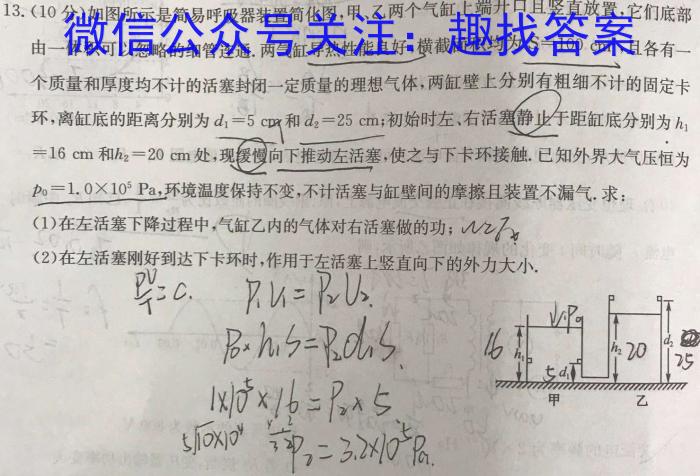 13.(10分)如图所示是简易呼吸器装置简化图,甲、乙两个气缸上端开口且竖直放置,它们底部
微信公众号关注：趣找答案
由一体积可以忽略的细管连通.两气缸导热性能良好,横截面积均为S=100 cm²,且各有一
个质量和厚度均不计的活塞封闭一定质量的理想气体,两缸壁上分别有粗细不计的固定卡
环,离缸底的距离分别为d₁=5 cm和d₂=25 cm;初始时左、右活塞静止于距缸底分别为h₁
=16 cm和h₂=20 cm处,现缓慢向下推动左活塞,使之与下卡环接触.已知外界大气压恒为
p₀=1.0×10⁵ Pa,环境温度保持不变,不计活塞与缸壁间的摩擦且装置不漏气.求:
(1)在左活塞下降过程中,气缸乙内的气体对右活塞做的功;
(2)在左活塞刚好到达下卡环时,作用于左活塞上竖直向下的外力大小.
PV/T=C. P₁V₁=P₂V₂.
P₀×h₁S=P₂d₁S
1×10⁵×16=P₂×5
P₂=3.2×10⁵Pa.
16 h₁ 5 d₁ P₀ h₂ 20 d₂ 25
甲 乙